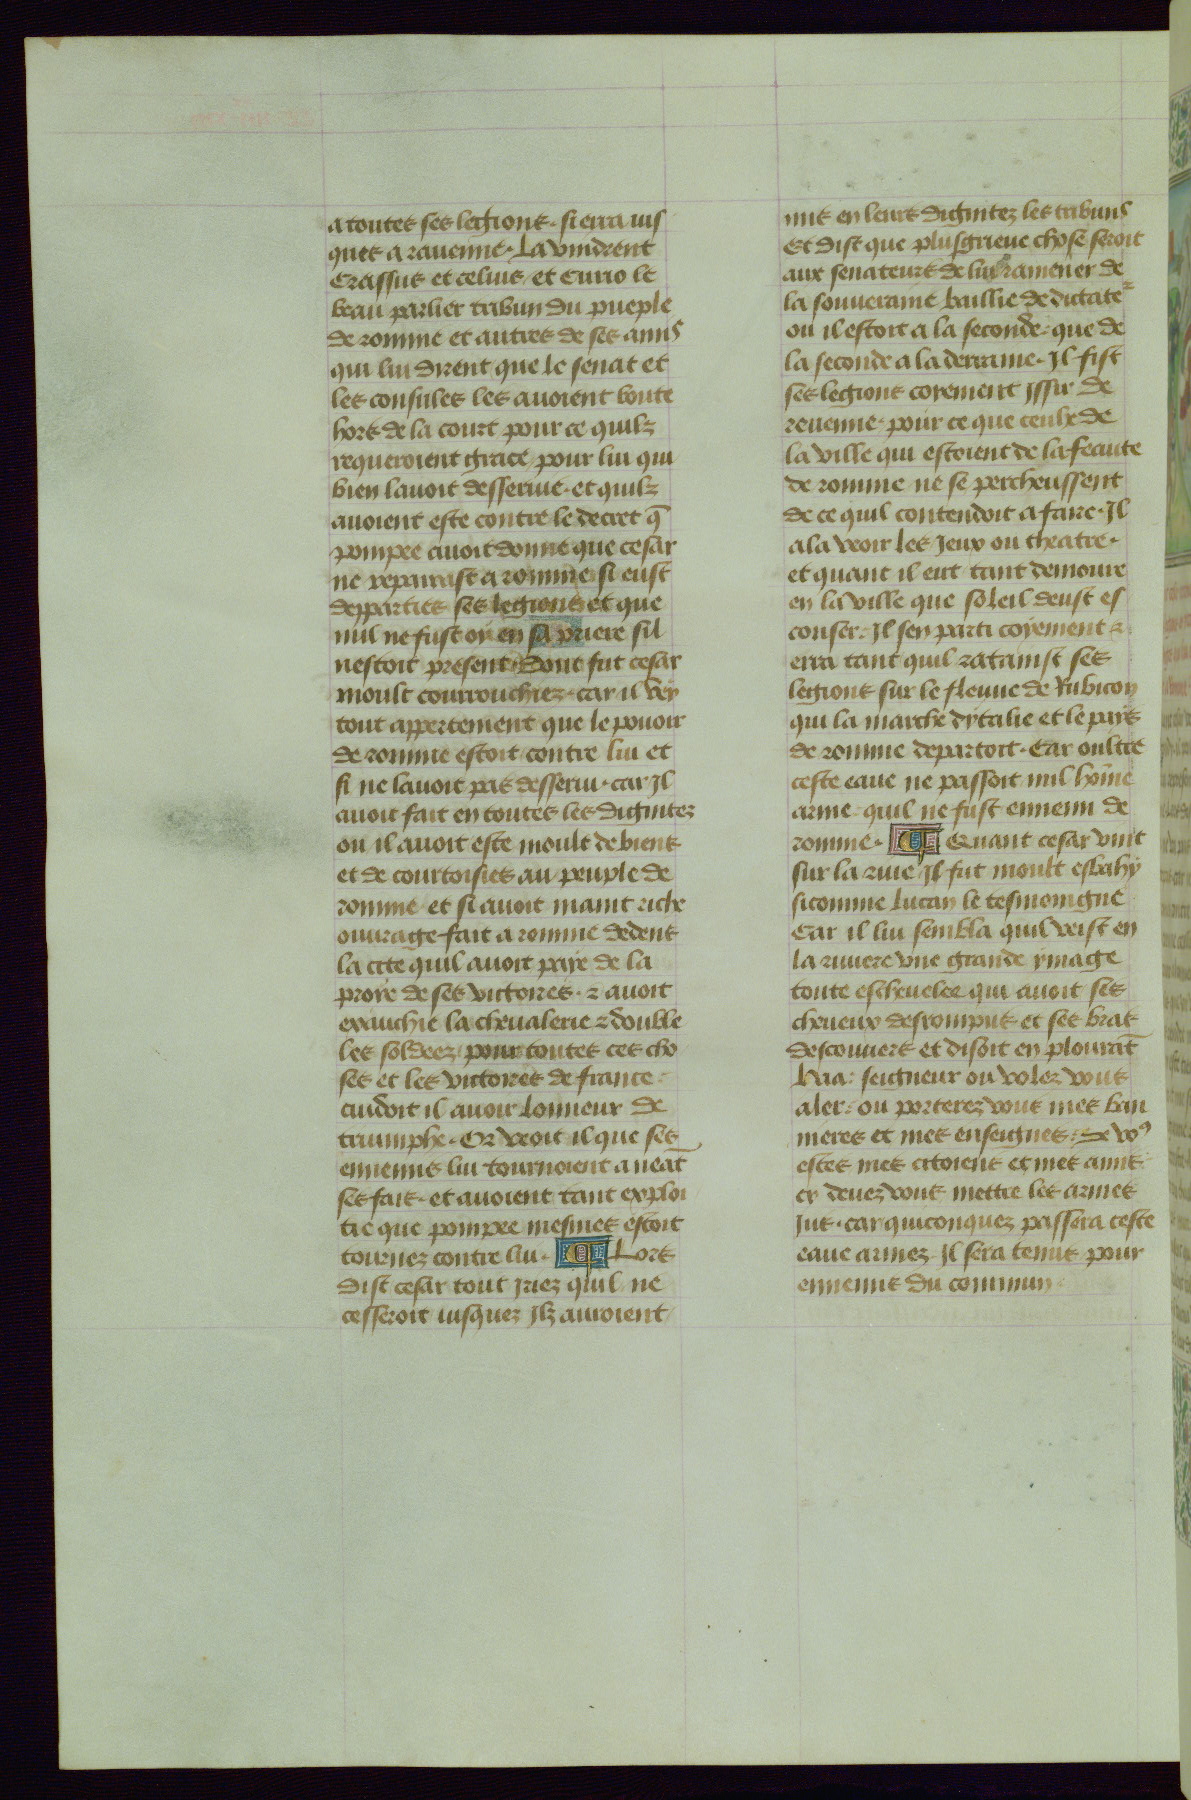 a toutes ses legions. si erra ius
ques a rauenne. La vindrent
Crassus et celius et Curio le
beau parlier tribun du pueple
de romme et autres de ses amis
qui lui dirent que le senat et
les consules les auoient boute
hors de la court pour ce quilz
requeroient grace pour lui qui
bien lauoit desseruie. et quilz
auoient este contre le decret q̄
pompee auoit donne que cesar
ne repairast a romme si eust
departies ses legions et que
nul ne fust oy en sa priere sil
nestoit present. Dont fut cesar
moult courrouchiez. car il vey
tout appertement que le pouoir
de romme estoit contre lui et
si ne lauoit pas desserui. car Jl
auoit fait en toutes les dignitez
ou il auoit este moult de biens
et de courtoisies au peuple de
romme et si auoit maint riche
ouurage fait a romme dedens
la cite quil auoit paye de la
proye de ses victoires. & auoit
exauchie la cheualerie & double
les soldeez. pour toutes ces cho
ses et les victoires de france.
cuidoit il auoir lonneur de
triumphe. Or veoit il que ses
ennemis lui tournoient a neāt
ses fais. et auoient tant exploi
tie que pompee mesmes estoit
tournez contre lui. ¶ Lors
dist cesar tout iriez quil ne
cesseroit iusquez Jlz auroient
mis en leurs dignitez les tribuns
Et dist que plus grieue chose seroit
aux senateurs de lui ramener de
la souueraine baillie de dictate
ou il estoit a la seconde. que de
la seconde a la derraine. Jl fist
ses legions coyement Jssir de
reuenne. pour ce que ceulx de
la ville qui estoient de la feaute
de romme ne se percheussent
de ce quil contendoit a faire. Jl
ala veoir les Jeux ou theatre.
et quant il eut tant demoure
en la ville que soleil deust es
conser. Jl sen parti coyement &
erra tant quil rataint ses
legions sur le fleuue de Rubicon
qui la marche dytalie et le pays
de romme departoit. Car oultre
ceste eaue ne passoit nul hōme
arme. quil ne fust ennemi de
romme. ¶ Quant cesar vint
sur la riue Jl fut moult esbahy
sicomme lucan le tesmoingne
Car il lui sembla quil veist en
la riuiere vne grande ymage
toute escheuelee qui auoit ses
cheueux desrompus et ses bras
descouuers et disoit en plourāt
haa: seigneur ou volez vous
aler. ou porterez vous mes ban
nieres et mes enseignes. se voꝰ
estes mes citoiens et mes amis.
cy deuez vous mettre les armes
Jus. car quiconquez passera ceste
eaue armez. Jl sera tenus pour
ennemis du commun.